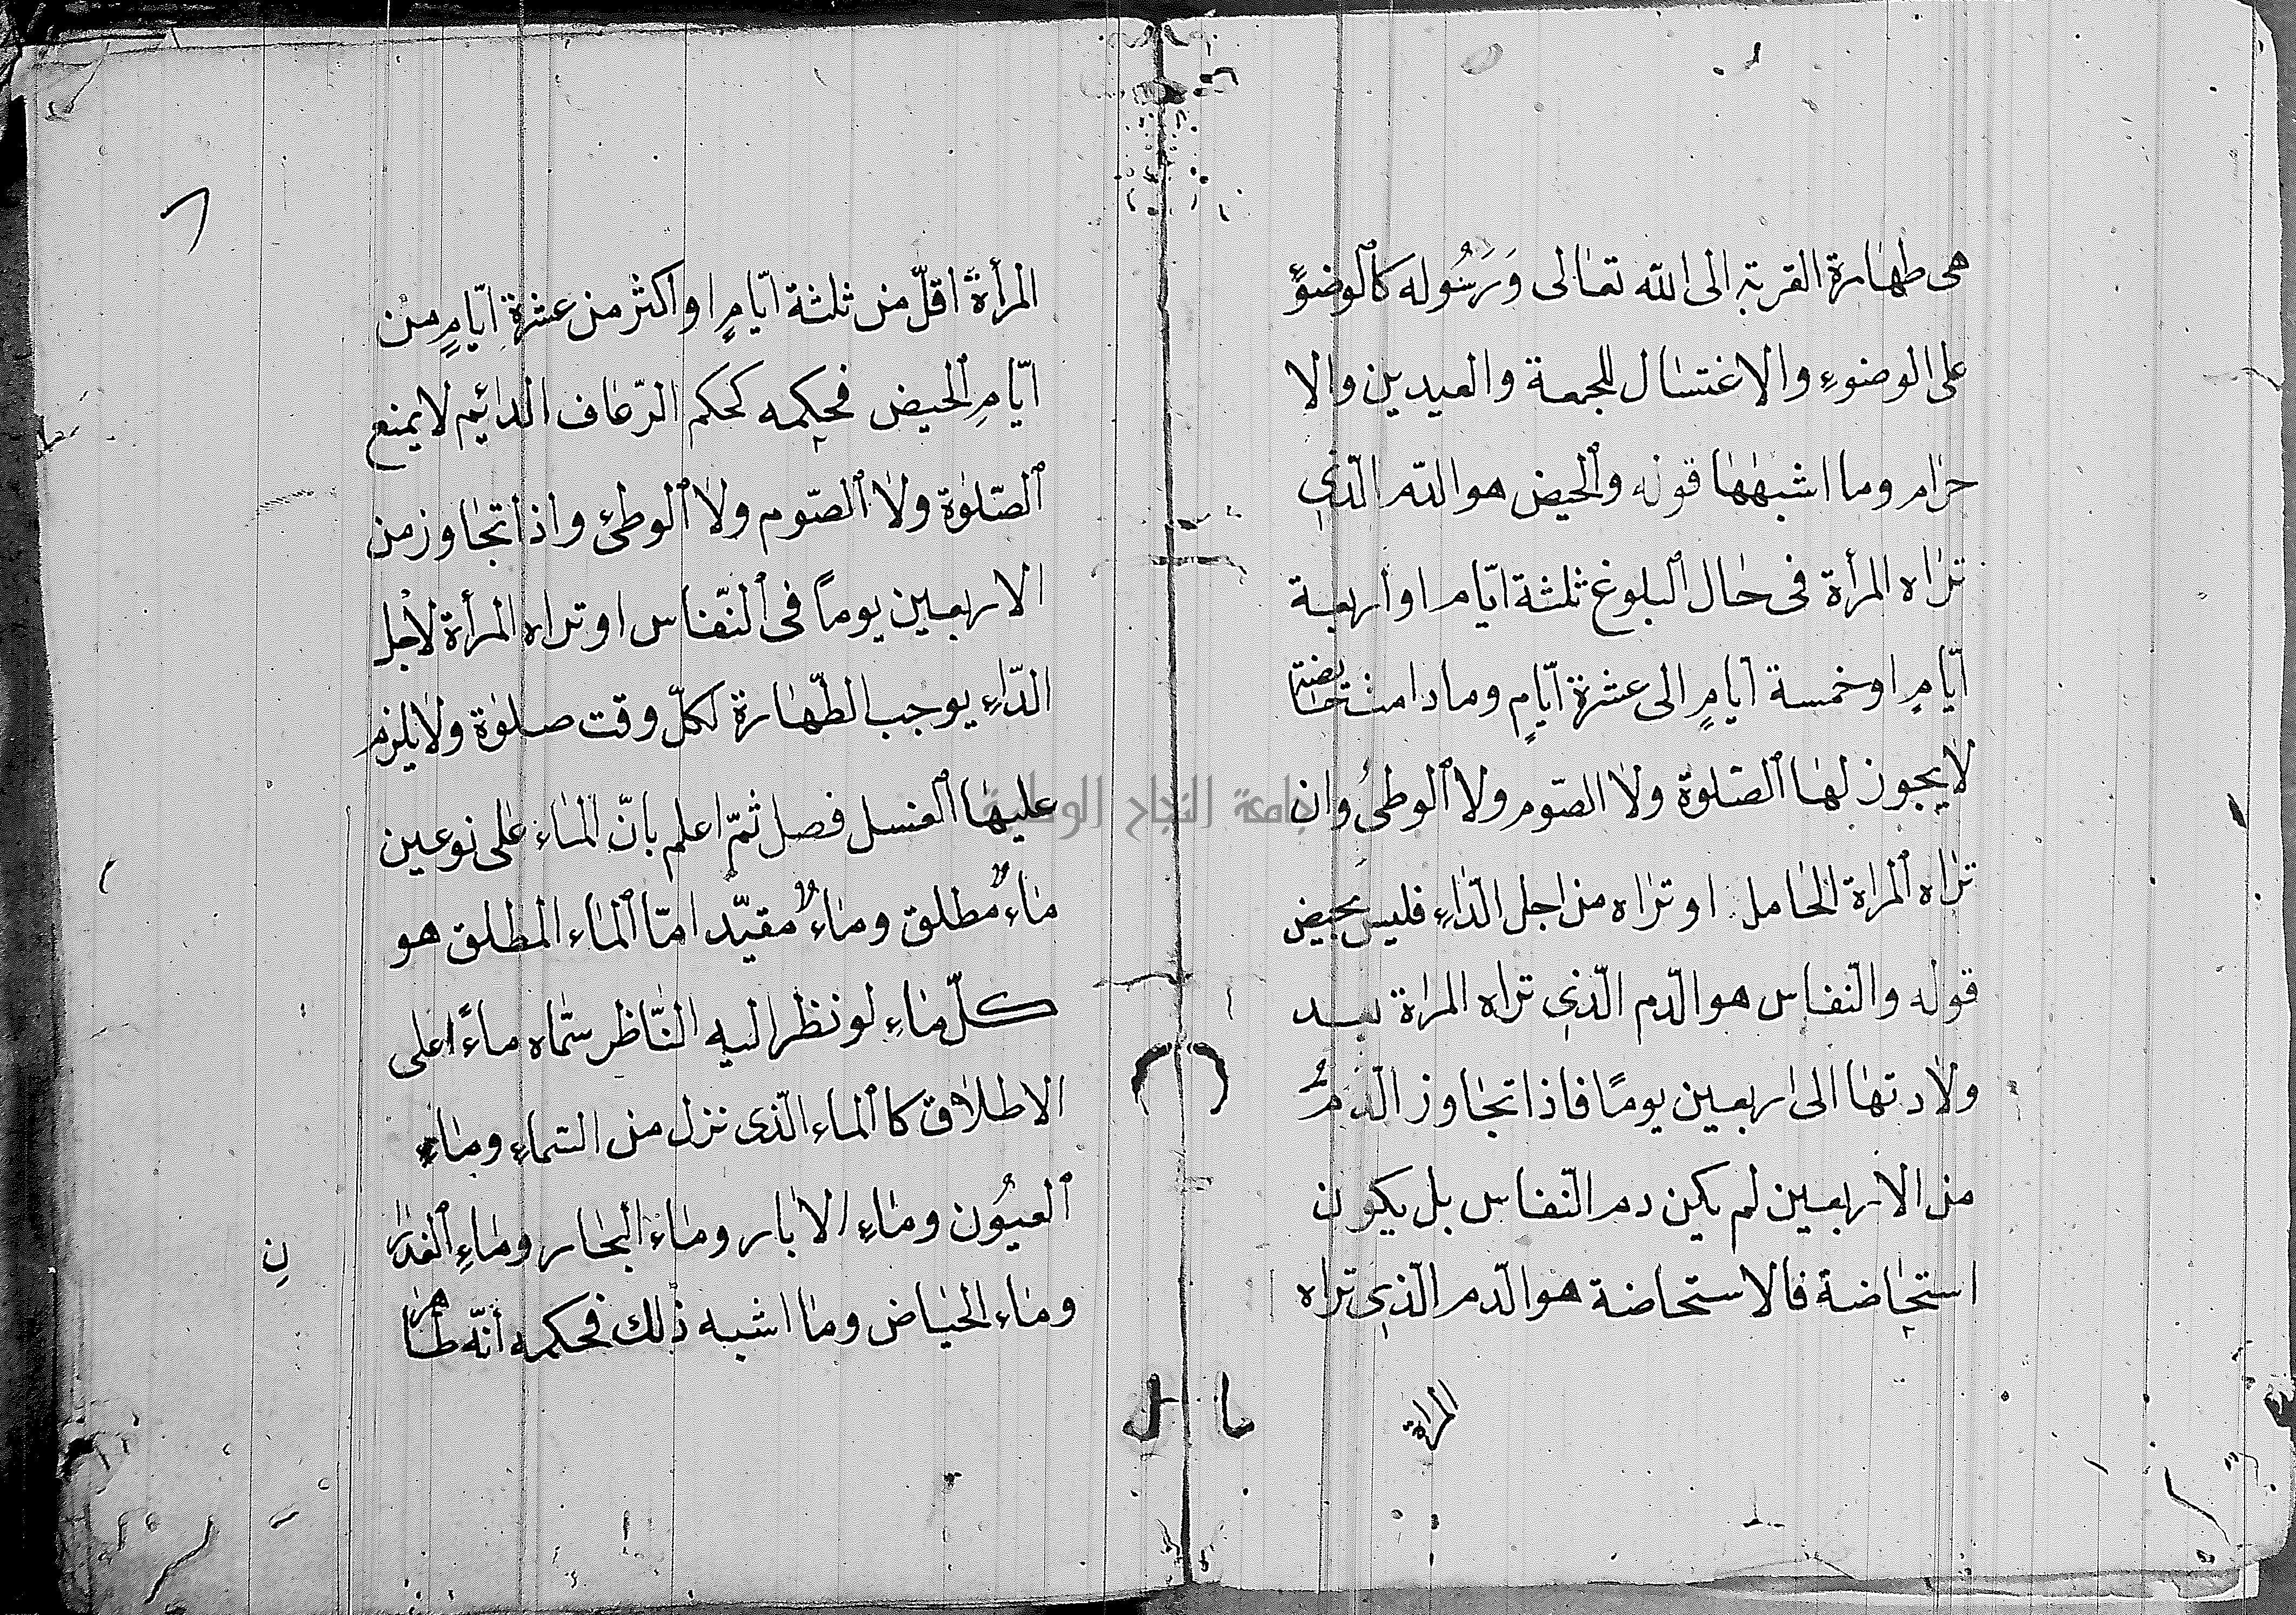 هى طهارة القربة الى الله تعالى وَرَسُوله كالوضوءِ
على الوضوءِ والاغتسال للجمعة والعيدين والا
حرام وما اشبهها قوله والحيض هو الدّم الّذى
تراه المرأة فى حال البلوغ ثلثة ايّام او اربعة
ايّامٍ او خمسة ايامٍ الى عشرة ايّامٍ وما دامت حائضة
لا يجوز لها الصّلوة ولا الصّوم ولا الوطئ وان
تراه المراة الحامل او تراه من اجل الدّاءِ فليس بحيض
قوله والنّفاس هو الدّم الّذى تراه المراة بعد
ولادتها الى اربعين يومًا فاذا تجاوز الدّمُ
من الاربعين لم يكن دم النّفاس بل يكون
استحاضة فالاستحاضة هو الدّم الّذى تراه
المراة
٦
المرأة اقلّ من ثلثة ايّامٍ او اكثر من عشرة ايّامٍ من
ايّامِ الحيض فحكمه كحكم الرّعاف الدائم لا يمنع
الصّلوة ولا الصّوم ولا الوطئ واذا تجاوز من
الاربعين يوماً فى النّفاس او تراه المرأة لاجل
الدّاءِ يوجب الطّهارة لكلّ وقت صلوة ولا يلزم
عليها الغسل فصل ثمّ اعلم بانّ الماء على نوعين
ماءٌ مطلق وماءٌ مقيّد امّا الماء المطلق هو
كلّ ماءٍ لو نظر اليه النّاظر سمّاه ماءً على
الاطلاق كالماء الّذى نزل من السّماءِ وماءِ
العيُون وماءِ الابار وماء البحار وماءِ الغدران
وماء الحياض وما اشبه ذلك فحكمه أنّه طاهر
جامعة النجاح الوطنية